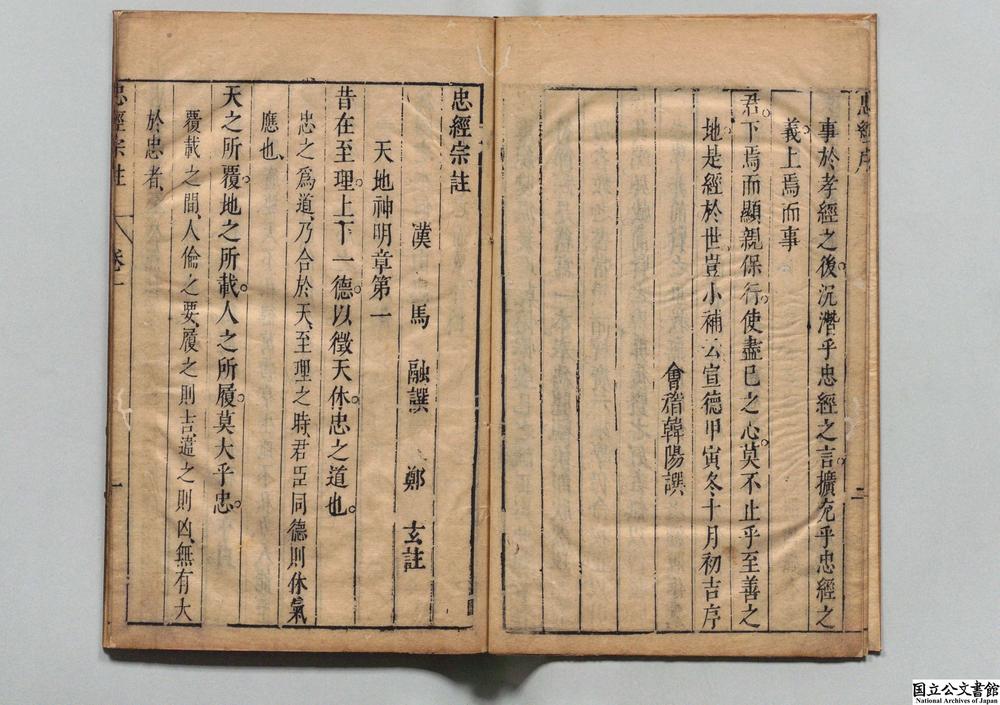 事於孝經之後。沉潛乎忠經之言。擴充乎忠經之
義。上焉而事
君。下焉而顯親保行。使盡己之心。莫不止乎至善之
地。是經於世豈小補云宣德甲寅冬十月初吉序
會稽韓陽譔
二
忠經宗註
漢 馬融譔 鄭玄註
天地神明章第一
昔在至理。上下一德。以徵天休。忠之道也。
忠之爲道、乃合於天、至理之時、君臣同德、則休氣
應也、
天之所覆。地之所載。人之所履。莫大乎忠。
覆載之間、人倫之要、履之則吉、違之則凶、無有大
於忠者、
忠經宗註 卷一 一
国立公文書館
National Archives of Japan